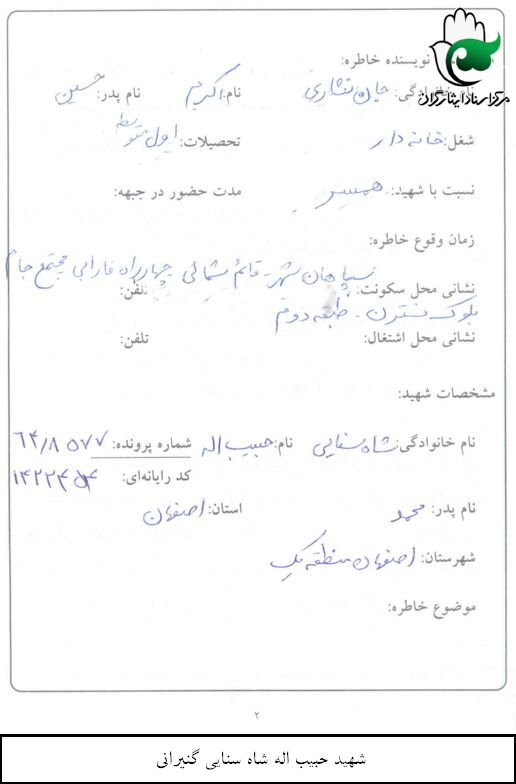 مرکز اسناد ایثارگران
نویسنده خاطره:
نام خانوادگی: جان نثاری نام: اکرم نام پدر: حسین
شغل: خانه دار تحصیلات: اول متوسطه
نسبت با شهید: همسر مدت حضور در جبهه:
زمان وقوع خاطره:
نشانی محل سکونت: سپاهان شهر - قائم شمالی چهارراه فارابی مجتمع جام تلفن:
بلوک نسترن - طبقه دوم
نشانی محل اشتغال: تلفن:
مشخصات شهید:
نام خانوادگی: شاه سنایی نام: حبیب اله شماره پرونده: ۶۴/۸۵۷۷
کد رایانه‌ای:
نام پدر: محمد استان: اصفهان
شهرستان: اصفهان منطقه یک
موضوع خاطره:
۲
شهید حبیب اله شاه سنایی گنیرانی